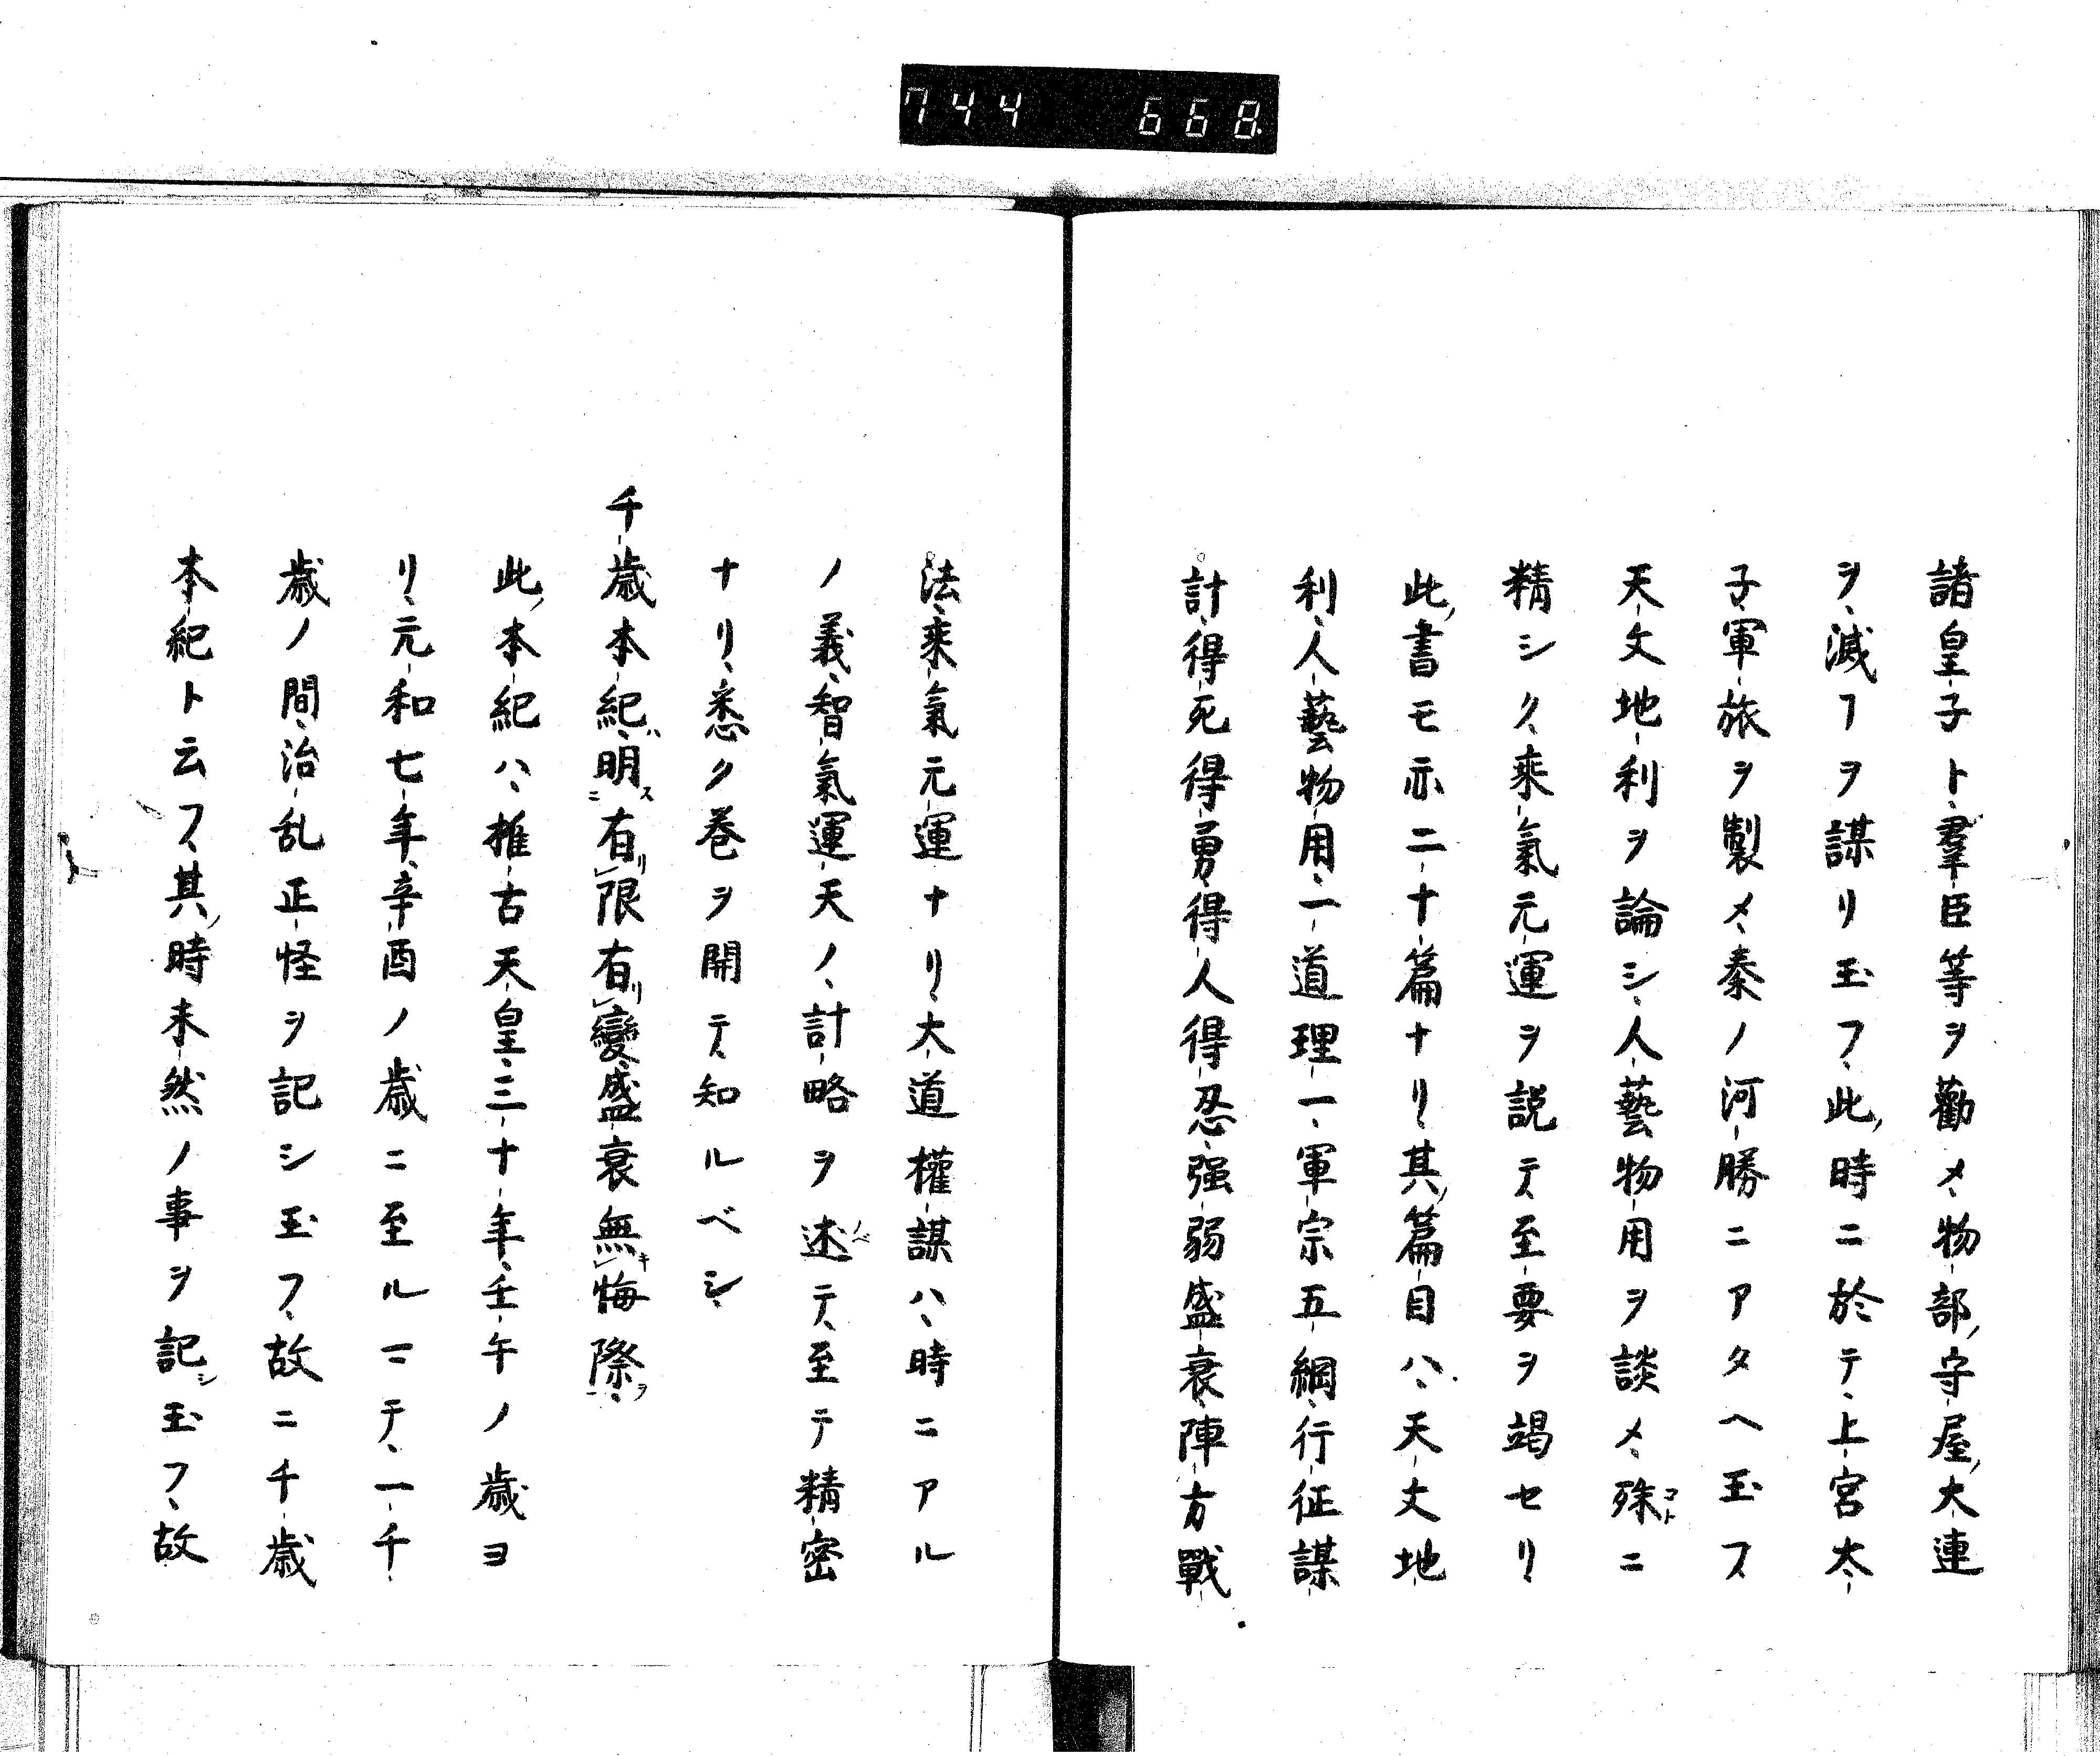 744 668
諸皇子ト羣臣等ヲ勸メ物部守屋大連
ヲ滅フヲ謀リ玉フ此時ニ於テ上宮太
子軍旅ヲ製メ秦ノ河勝ニアタヘ玉フ
天文地利ヲ論シ人藝物用ヲ談メ殊ニ
精シク来氣元運ヲ説テ至要ヲ竭セリ
此書モ亦二十篇ナリ其篇目ハ天文地
利人藝物用一道理一軍宗五綱行征謀
計得死得勇得人得忍强弱盛衰陣方戰
法来氣元運ナリ大道權謀ハ時ニアル
ノ義智氣運天ノ計略ヲ述テ至テ精密
ナリ悉ク巻ヲ開テ知ルベシ
千歳本紀明有限有變盛衰無悔際
此本紀ハ推古天皇三十年壬午ノ歳ヨ
リ元和七年辛酉ノ歳ニ至ルマテ一千
歳ノ間治乱正怪ヲ記シ玉フ故ニ千歳
本紀ト云フ其時未然ノ事ヲ記シ玉フ故